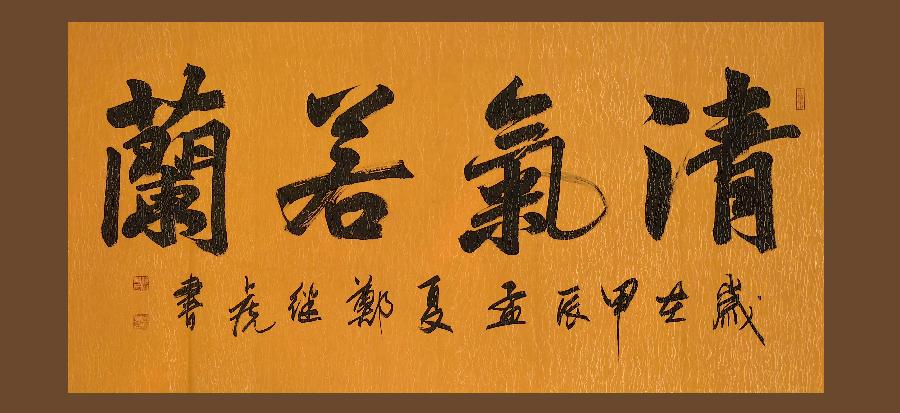 清氣若蘭
歲在甲辰孟夏鄭继虎書